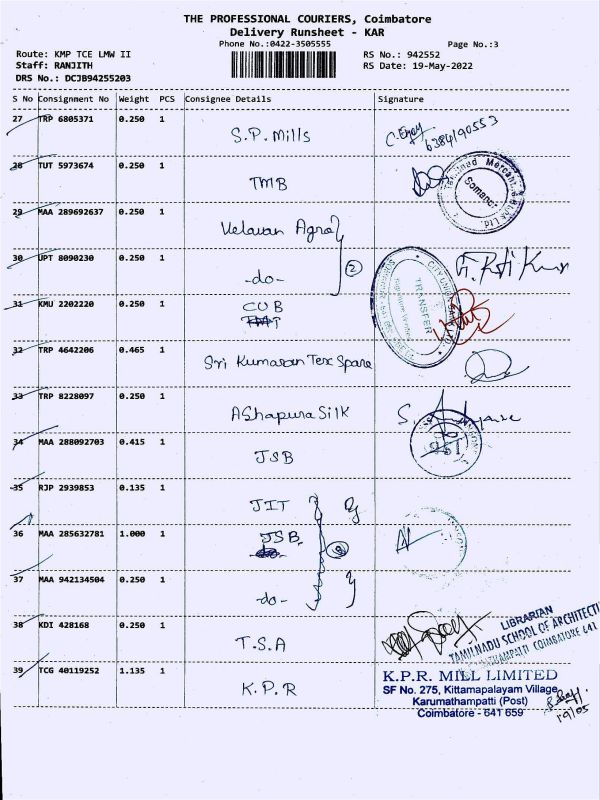 THE PROFESSIONAL COURIERS, Coimbatore
Delivery Runsheet - KAR
Phone No.:0422-3505555 Page No.:3
Route: KMP TCE LMW II RS No.: 942552
Staff: RANJITH RS Date: 19-May-2022
DRS No.: DCJB94255203
S No Consignment No Weight PCS Consignee Details Signature
27 TRP 6805371 0.250 1
S.P. Mills 6384190553
28 TUT 5973674 0.250 1
TMB
29 MAA 289692637 0.250 1
Velavan Agro
30 UPT 8090230 0.250 1
-do- 2
31 KMU 2202220 0.250 1
CUB
CITY UNION
TRANSFER
32 TRP 4642206 0.465 1
Sri Kumaran Tex Spare
33 TRP 8228097 0.250 1
AShapura Silk
34 MAA 288092703 0.415 1
JSB
35 RJP 2939853 0.135 1
JIT
36 MAA 285632781 1.000 1
JSB
37 MAA 942134504 0.250 1
-do-
38 KDI 428168 0.250 1
T.S.A
LIBRARIAN
TAMILNADU SCHOOL OF ARCHITECTU
COIMBATORE 641
39 TCG 40119252 1.135 1
K.P.R
K.P.R. MILL LIMITED
SF No. 275, Kittamapalayam Village,
Karumathampatti (Post)
Coimbatore - 641 659
19/05